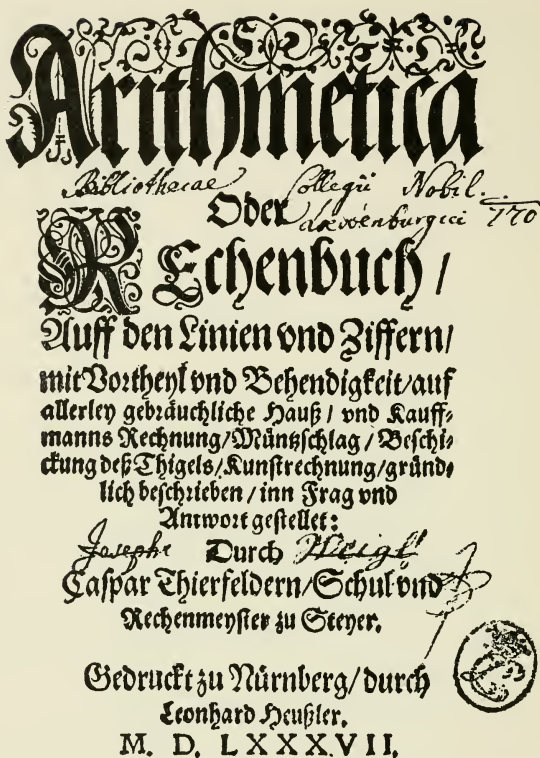 Arithmetica
Bibliothecae Collegii Nobil.
Oder
REchenbuch /
Auff den Linien vnd Ziffern/
mit Vortheyl vnd Behendigkeit/auf
allerley gebräuchliche Hauß / vnd Kauff-
manns Rechnung/Müntzschlag / Beschi-
ckung deß Thigels/Kunstrechnung/gründ-
lich beschrieben / inn Frag vnd
Antwort gestellet:
Josephi Durch Weigl
Caspar Thierfeldern/Schul vnd
Rechenmeyster zu Steyer.
Gedruckt zu Nürnberg/durch
Leonhard Heußler.
M. D. LXXXVII.